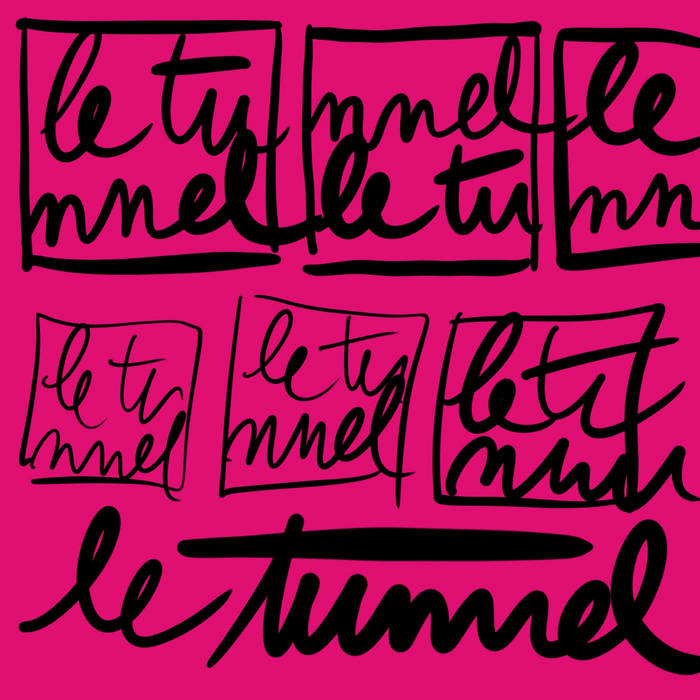 le tu
nnel
nnel
le tu
le
nn
le tu
nnel
le tu
nnel
le tu
nnel
le tunnel